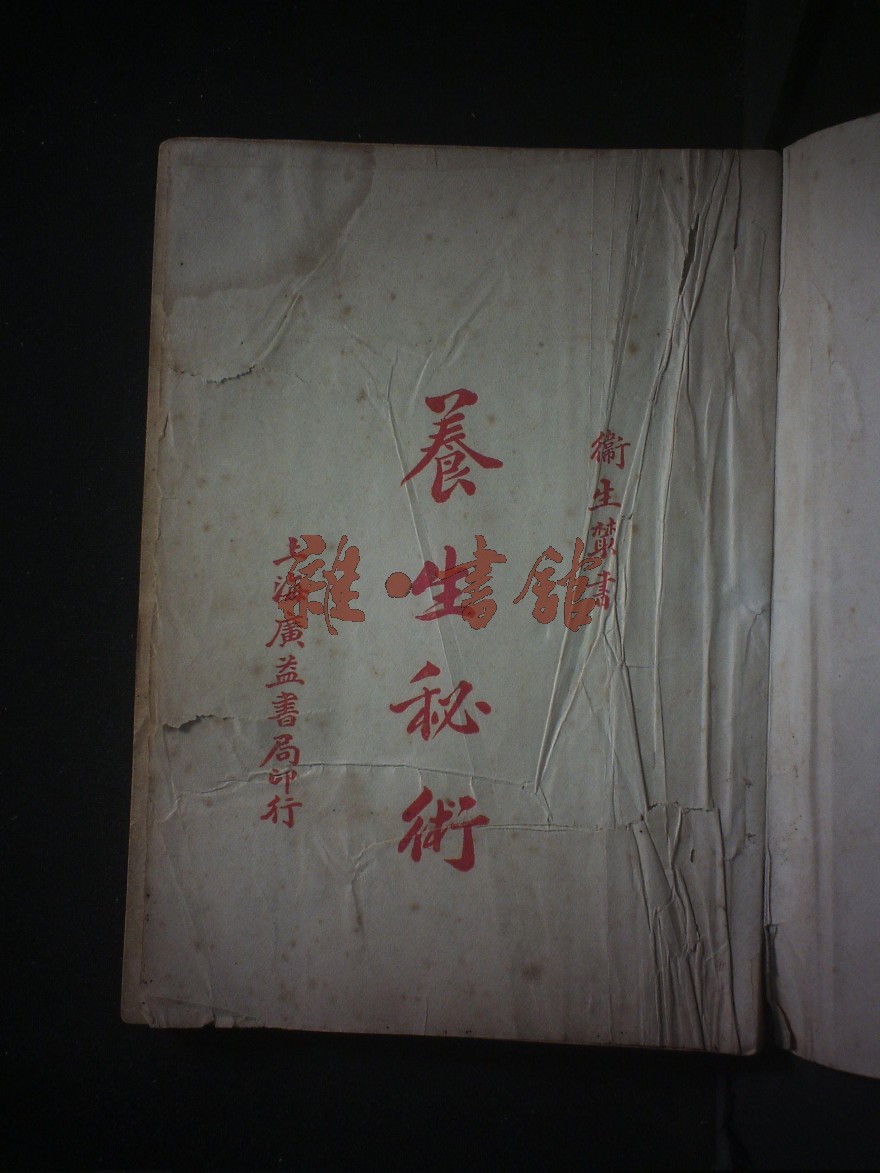 衞生叢書
養生秘術
上海廣益書局印行
雜·書館